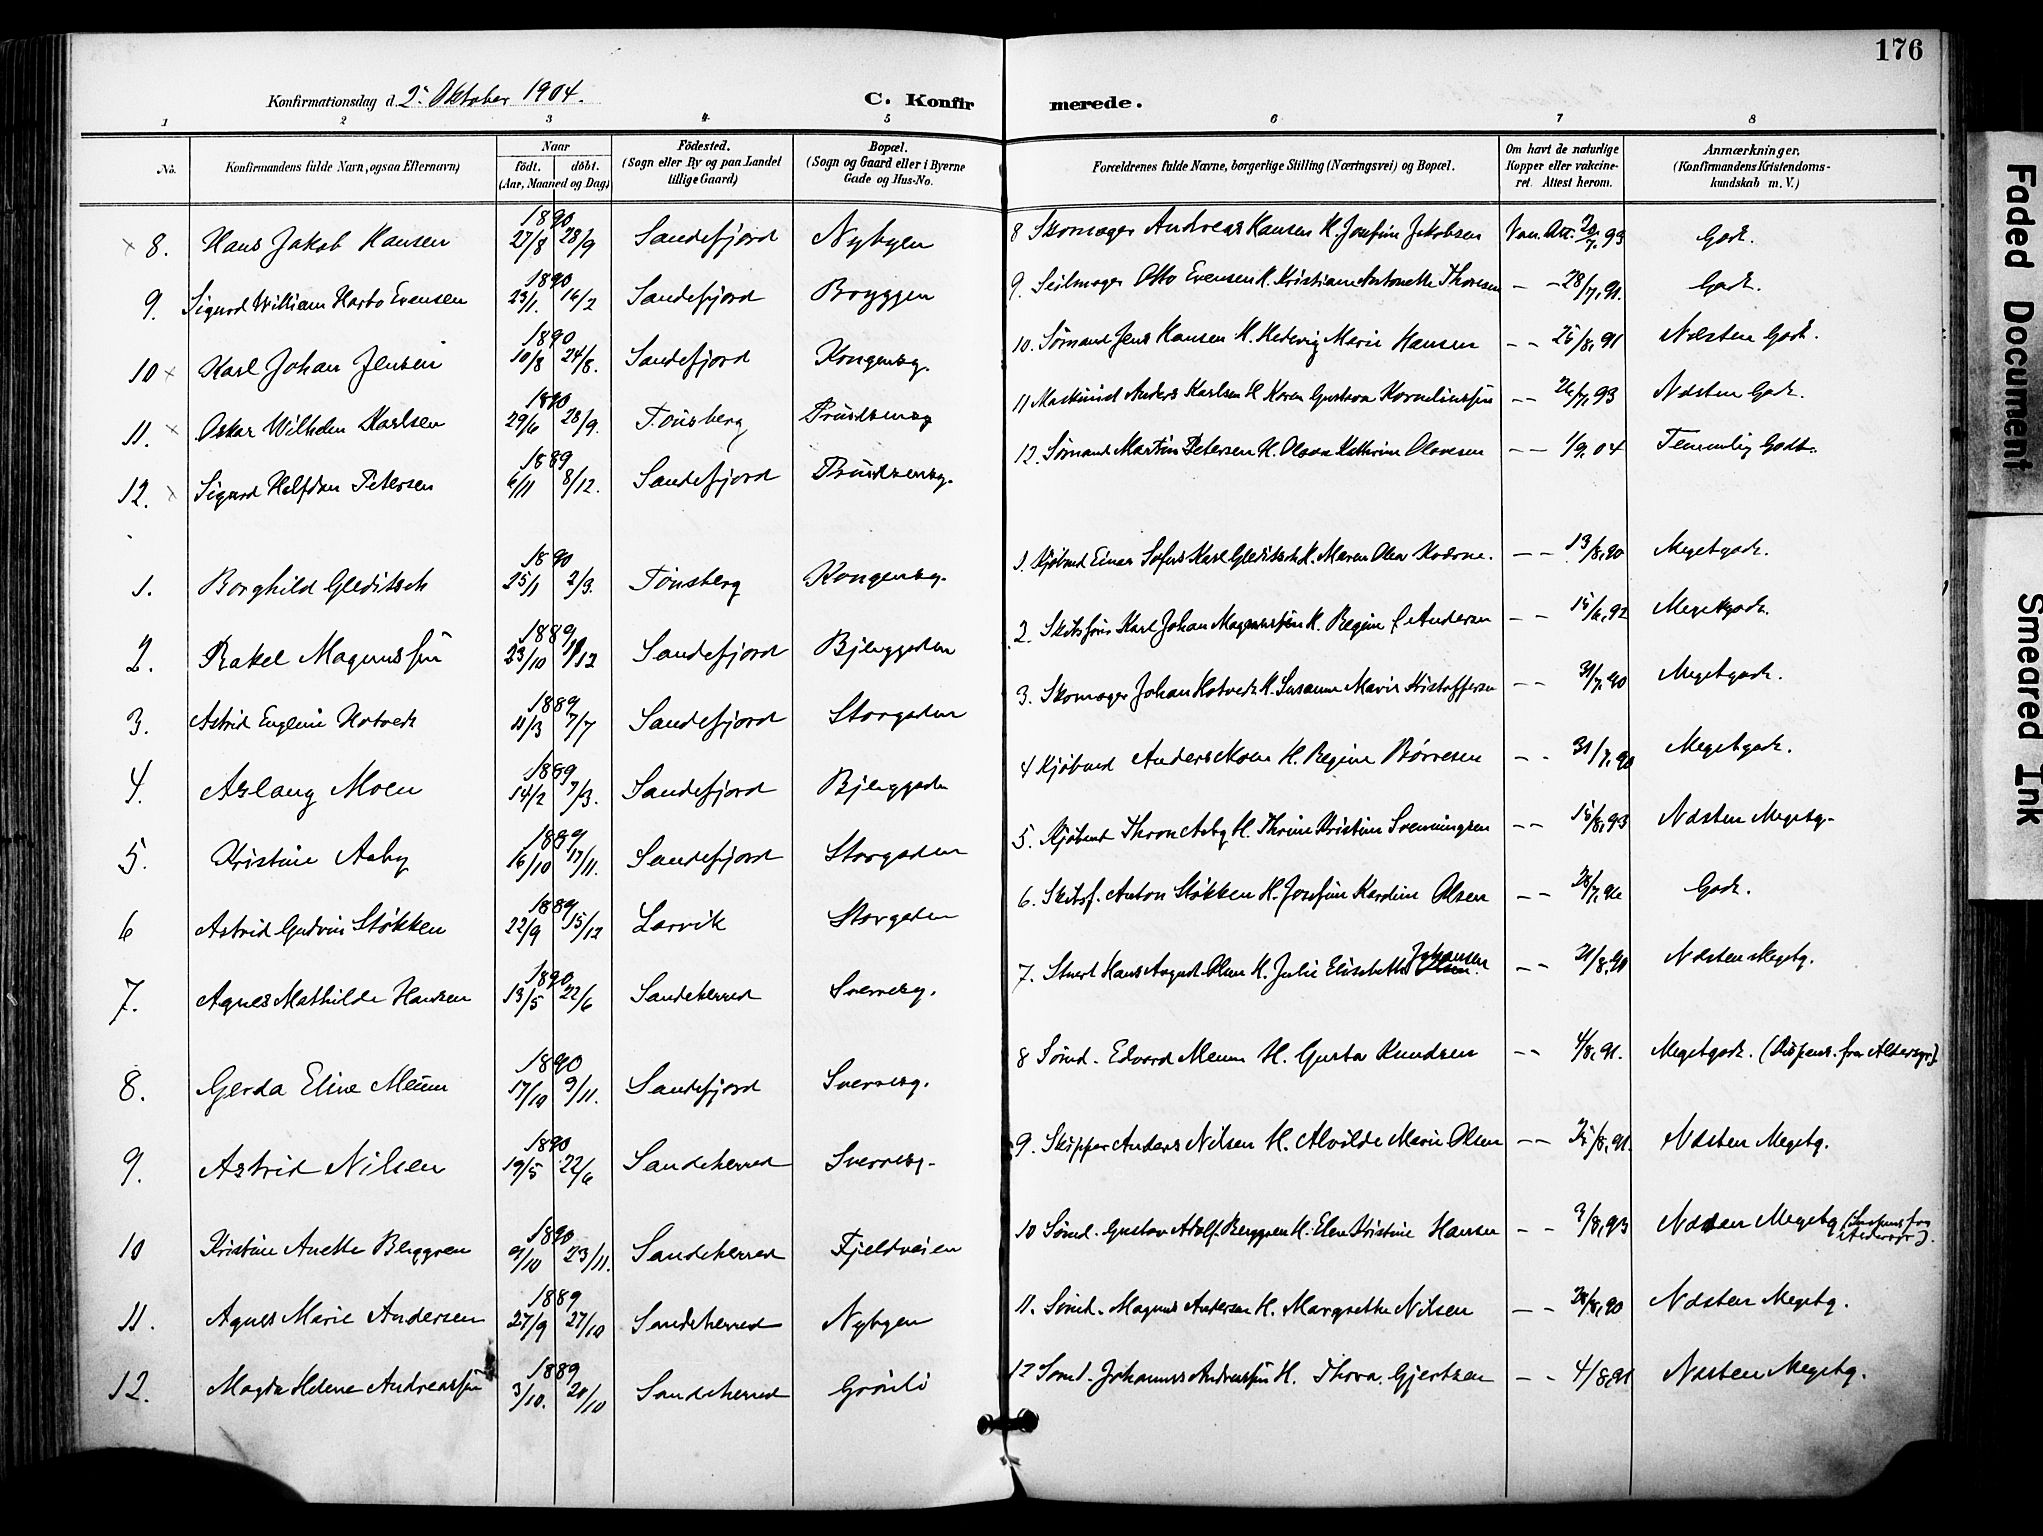 176
Konfirmationsdag d. 2. Oktober 1904.
C. Konfirmerede.
1 2 3 4 5 6 7 8
No.
Konfirmandens fulde Navn, ogsaa Efternavn)
Naar
födt. döbt.
(Aar, Maaned og Dag)
Födested.
(Sogn eller By og paa Landet
tillige Gaard)
Bopæl.
(Sogn og Gaard eller i Byerne
Gade og Hus-No.
Forældrenes fulde Navne, borgerlige Stilling (Næringsvei) og Bopæl.
Om havt de naturlige
Kopper eller vakcine-
ret. Attest herom.
Anmærkninger,
(Konfirmandens Kristendoms-
kundskab m. V.)
× 8. Hans Jakob Hansen 1890 27/8 28/9 Sandefjord Nybyen 8 Skomager Andreas Hansen H. Josefine Jakobsen 93 Godt.
9. Sigurd William Evensen 1890 23/1. 16/2 Sandefjord Bryggen 9. Seilmager Otto Evensen H. Kristiane Antonette Thoresen — — 28/7, 91. Godt.
10 × Karl Johan Jensen 1890 10/8 24/8. Sandefjord Kongensg. 10. Sømand Jens Hansen H. Hedevig Marie Hansen — — 25/8, 91 Næsten Godt.
11. × Oskar Wilhelm Karlsen 1890 29/6 28/9. Tönsberg 11 Maskinist Anders Karlsen H. Karen Gustava Korneliussen — — 26/7, 93 Næsten Godt.
12. × Sigurd Halfdan Petersen 1889 6/11 8/12. Sandefjord 12. Sømand Martin Petersen H. Olava Kathrine Olavesen — — 1/9, 04 Temmelig Godt.
1. Borghild Gleditsch 1890 25/1 2/3. Tönsberg Kongensg. 1. Kjøbmd Einar Sofus Karl Gleditsch H. Maren Olea Kværne. — — 13/8, 90 Megetgodt.
2. Rakel Magnussen 1889 23/10 Sandefjord Bjerggaden 2. Skibsfører Karl Johan Magnussen H. Regine Andersen — — 15/6, 92 Megetgodt.
3. Astrid Eugenie Hotvedt 1889 7/7 Sandefjord Storgaden 3. Skomager Johan Hotvedt H. Susanne Marie Kristoffersen — — 31/7, 90 Megetgodt.
4. Aslaug Moen 1889 14/2 7/3. Sandefjord Bjerggaden 4 Kjøbmd Anders Moen H. Regine Børresen — — 31/7, 90 Megetgodt.
5. Kristine Aaby 1889 16/10 17/11. Sandefjord Storgaden 5. Kjøbmd Thron Aaby H. Thrine Kristine Svenningsen — — 15/8, 93 Næsten Megetg.
6 Astrid Gudrun Stökken 1889 22/9 15/12 Larvik Storgaden 6. Skibsf. Anton Stökken H. Josefine Karoline Olsen — — 28/7, 96 Godt.
7. Agnes Mathilde Hansen 1890 13/5 22/6 Sandeherred Sverresg. 7. Stuert Hans August Olsen H. Julie Elisabeth Johansen — — 21/8, 91 Næsten Megetg.
8. Gerda Eline Meum 1890 17/10 9/11. Sandefjord Sverresg. 8 Sömd. Edvard Meum H. Gusta Knudsen — — 4/8, 91. Megetgodt. (Dispens. fra Aldersgr.)
9. Astrid Nilsen 1890 19/5 22/6 Sandeherred Sverresg. 9. Skipper Anders Nilsen H. Alvilde Marie Olsen — — 25/8, 91. Næsten Megetg.
10 Kristine Anette Berggren 1890 9/10 23/11. Sandeherred Fjeldveien 10 Sömd. Gustav Adolf Berggren H. Elen Kristine Hansen — — 3/8, 93 Næsten Megetg. (Dispens fra Aldersgr.).
11. Agnes Marie Andersen 1889 27/9 27/10 Sandeherred Nybyen 11. Sömd. Magnus Andersen H. Margrethe Nilsen — — 28/8, 90 Næsten Megetg.
12. Magda Helene Andreassen 1889 3/10. 20/10 Sandeherred Grönli 12 Sömd. Johannes Andreassen H. Thora Gjertsen — — 4/8, 91 Næsten Megetg.
Faded Document
Smeared Ink